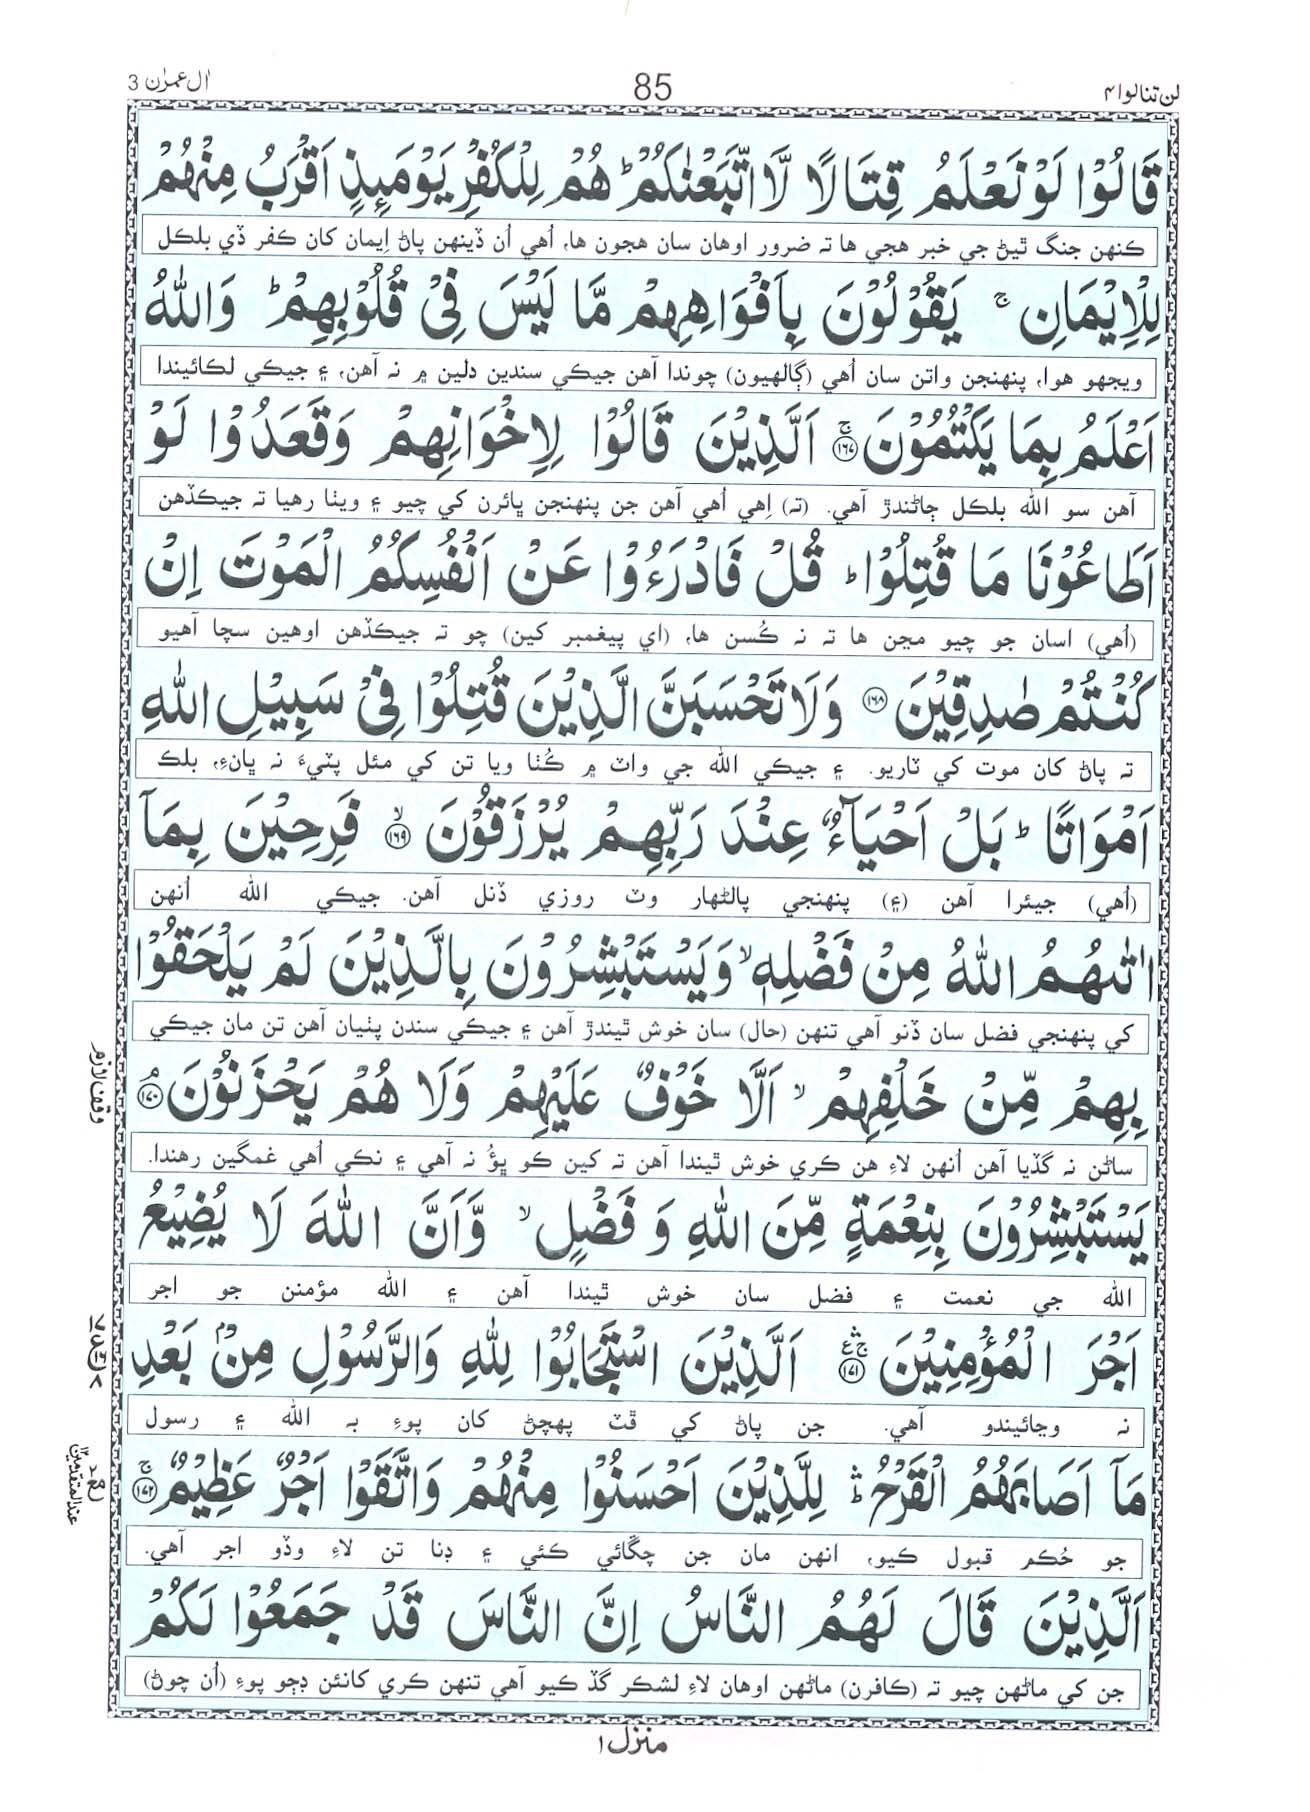 لن تنالوا ۴
85
اٰل عمرٰن 3
قَالُوْا لَوْ نَعْلَمُ قِتَالًا لَّا اتَّبَعْنٰكُمْ ؕ هُمْ لِلْكُفْرِ يَوْمَىِٕذٍ اَقْرَبُ مِنْهُمْ
ڪنهن جنگ ٿيڻ جي خبر هجي ها ته ضرور اوهان سان هجون ها، اُهي اُن ڏينهن پاڻ اِيمان کان ڪفر ڏي بلڪل
لِلْاِيْمَانِ ۚ يَقُوْلُوْنَ بِاَفْوَاهِهِمْ مَّا لَيْسَ فِىْ قُلُوْبِهِمْ ؕ وَاللّٰهُ
ويجهو هوا، پنهنجن واتن سان اُهي (ڳالهيون) چوندا آهن جيڪي سندين دلين ۾ نہ آهن، ۽ جيڪي لڪائيندا
اَعْلَمُ بِمَا يَكْتُمُوْنَ ۚ‏﴿۱۶۷﴾ اَلَّذِيْنَ قَالُوْا لِاِخْوَانِهِمْ وَقَعَدُوْا لَوْ
آهن سو الله بلڪل ڄاڻندڙ آهي. (تہ) اِهي اُهي آهن جن پنهنجن ڀائرن کي چيو ۽ ويٺا رهيا تہ جيڪڏهن
اَطَاعُوْنَا مَا قُتِلُوْا ؕ قُلْ فَادْرَءُوْا عَنْ اَنْفُسِكُمُ الْمَوْتَ اِنْ
(اُهي) اسان جو چيو مڃن ها تہ نہ ڪُسن ها، (اي پيغمبر کين) چو تہ جيڪڏهن اوهين سچا آهيو
كُنْتُمْ صٰدِقِيْنَ ﴿۱۶۸﴾ وَلَا تَحْسَبَنَّ الَّذِيْنَ قُتِلُوْا فِىْ سَبِيْلِ اللّٰهِ
تہ پاڻ کان موت کي ٽاريو. ۽ جيڪي الله جي واٽ ۾ ڪُٺا ويا تن کي مئل پٽيءَ نہ ڀانءِ، بلڪ
اَمْوَاتًا ؕ بَلْ اَحْيَآءٌ عِنْدَ رَبِّهِمْ يُرْزَقُوْنَ ۙ‏﴿۱۶۹﴾ فَرِحِيْنَ بِمَآ
(اُهي) جيئرا آهن (۽) پنهنجي پالڻهار وٽ روزي ڏنل آهن. جيڪي الله اُنهن
اٰتٰٮهُمُ اللّٰهُ مِنْ فَضْلِهٖ ۙ وَيَسْتَبْشِرُوْنَ بِالَّذِيْنَ لَمْ يَلْحَقُوْا
کي پنهنجي فضل سان ڏنو آهي تنهن (حال) سان خوش ٿيندڙ آهن ۽ جيڪي سندن پٺيان آهن تن مان جيڪي
بِهِمْ مِّنْ خَلْفِهِمْ ۙ اَلَّا خَوْفٌ عَلَيْهِمْ وَلَا هُمْ يَحْزَنُوْنَ ۘ‏﴿۱۷۰﴾
وقف لازم
ساڻن نہ گڏيا آهن اُنهن لاءِ هن ڪري خوش ٿيندا آهن تہ کين ڪو ڀؤُ نہ آهي ۽ نڪي اُهي غمگين رهندا.
يَسْتَبْشِرُوْنَ بِنِعْمَةٍ مِّنَ اللّٰهِ وَ فَضْلٍ ۙ وَّاَنَّ اللّٰهَ لَا يُضِيْعُ
الله جي نعمت ۽ فضل سان خوش ٿيندا آهن ۽ الله مؤمنن جو اجر
اَجْرَ الْمُؤْمِنِيْنَ ﴿۱۷۱﴾ اَلَّذِيْنَ اسْتَجَابُوْا لِلّٰهِ وَالرَّسُوْلِ مِنْۢ بَعْدِ
نہ وڃائيندو آهي. جن پاڻ کي ڦٽ پهچڻ کان پوءِ بہ الله ۽ رسول
مَآ اَصَابَهُمُ الْقَرْحُ ۛؕ لِلَّذِيْنَ اَحْسَنُوْا مِنْهُمْ وَاتَّقَوْا اَجْرٌ عَظِيْمٌ ۚ‏﴿۱۷۲﴾
جو حُڪم قبول ڪيو، انهن مان جن چڱائي ڪئي ۽ ڊنا تن لاءِ وڏو اجر آهي.
اَلَّذِيْنَ قَالَ لَهُمُ النَّاسُ اِنَّ النَّاسَ قَدْ جَمَعُوْا لَكُمْ
جن کي ماڻهن چيو تہ (ڪافرن) ماڻهن اوهان لاءِ لشڪر گڏ ڪيو آهي تنهن ڪري کانئن ڊڄو پوءِ (اُن چوڻ)
منزل ۱